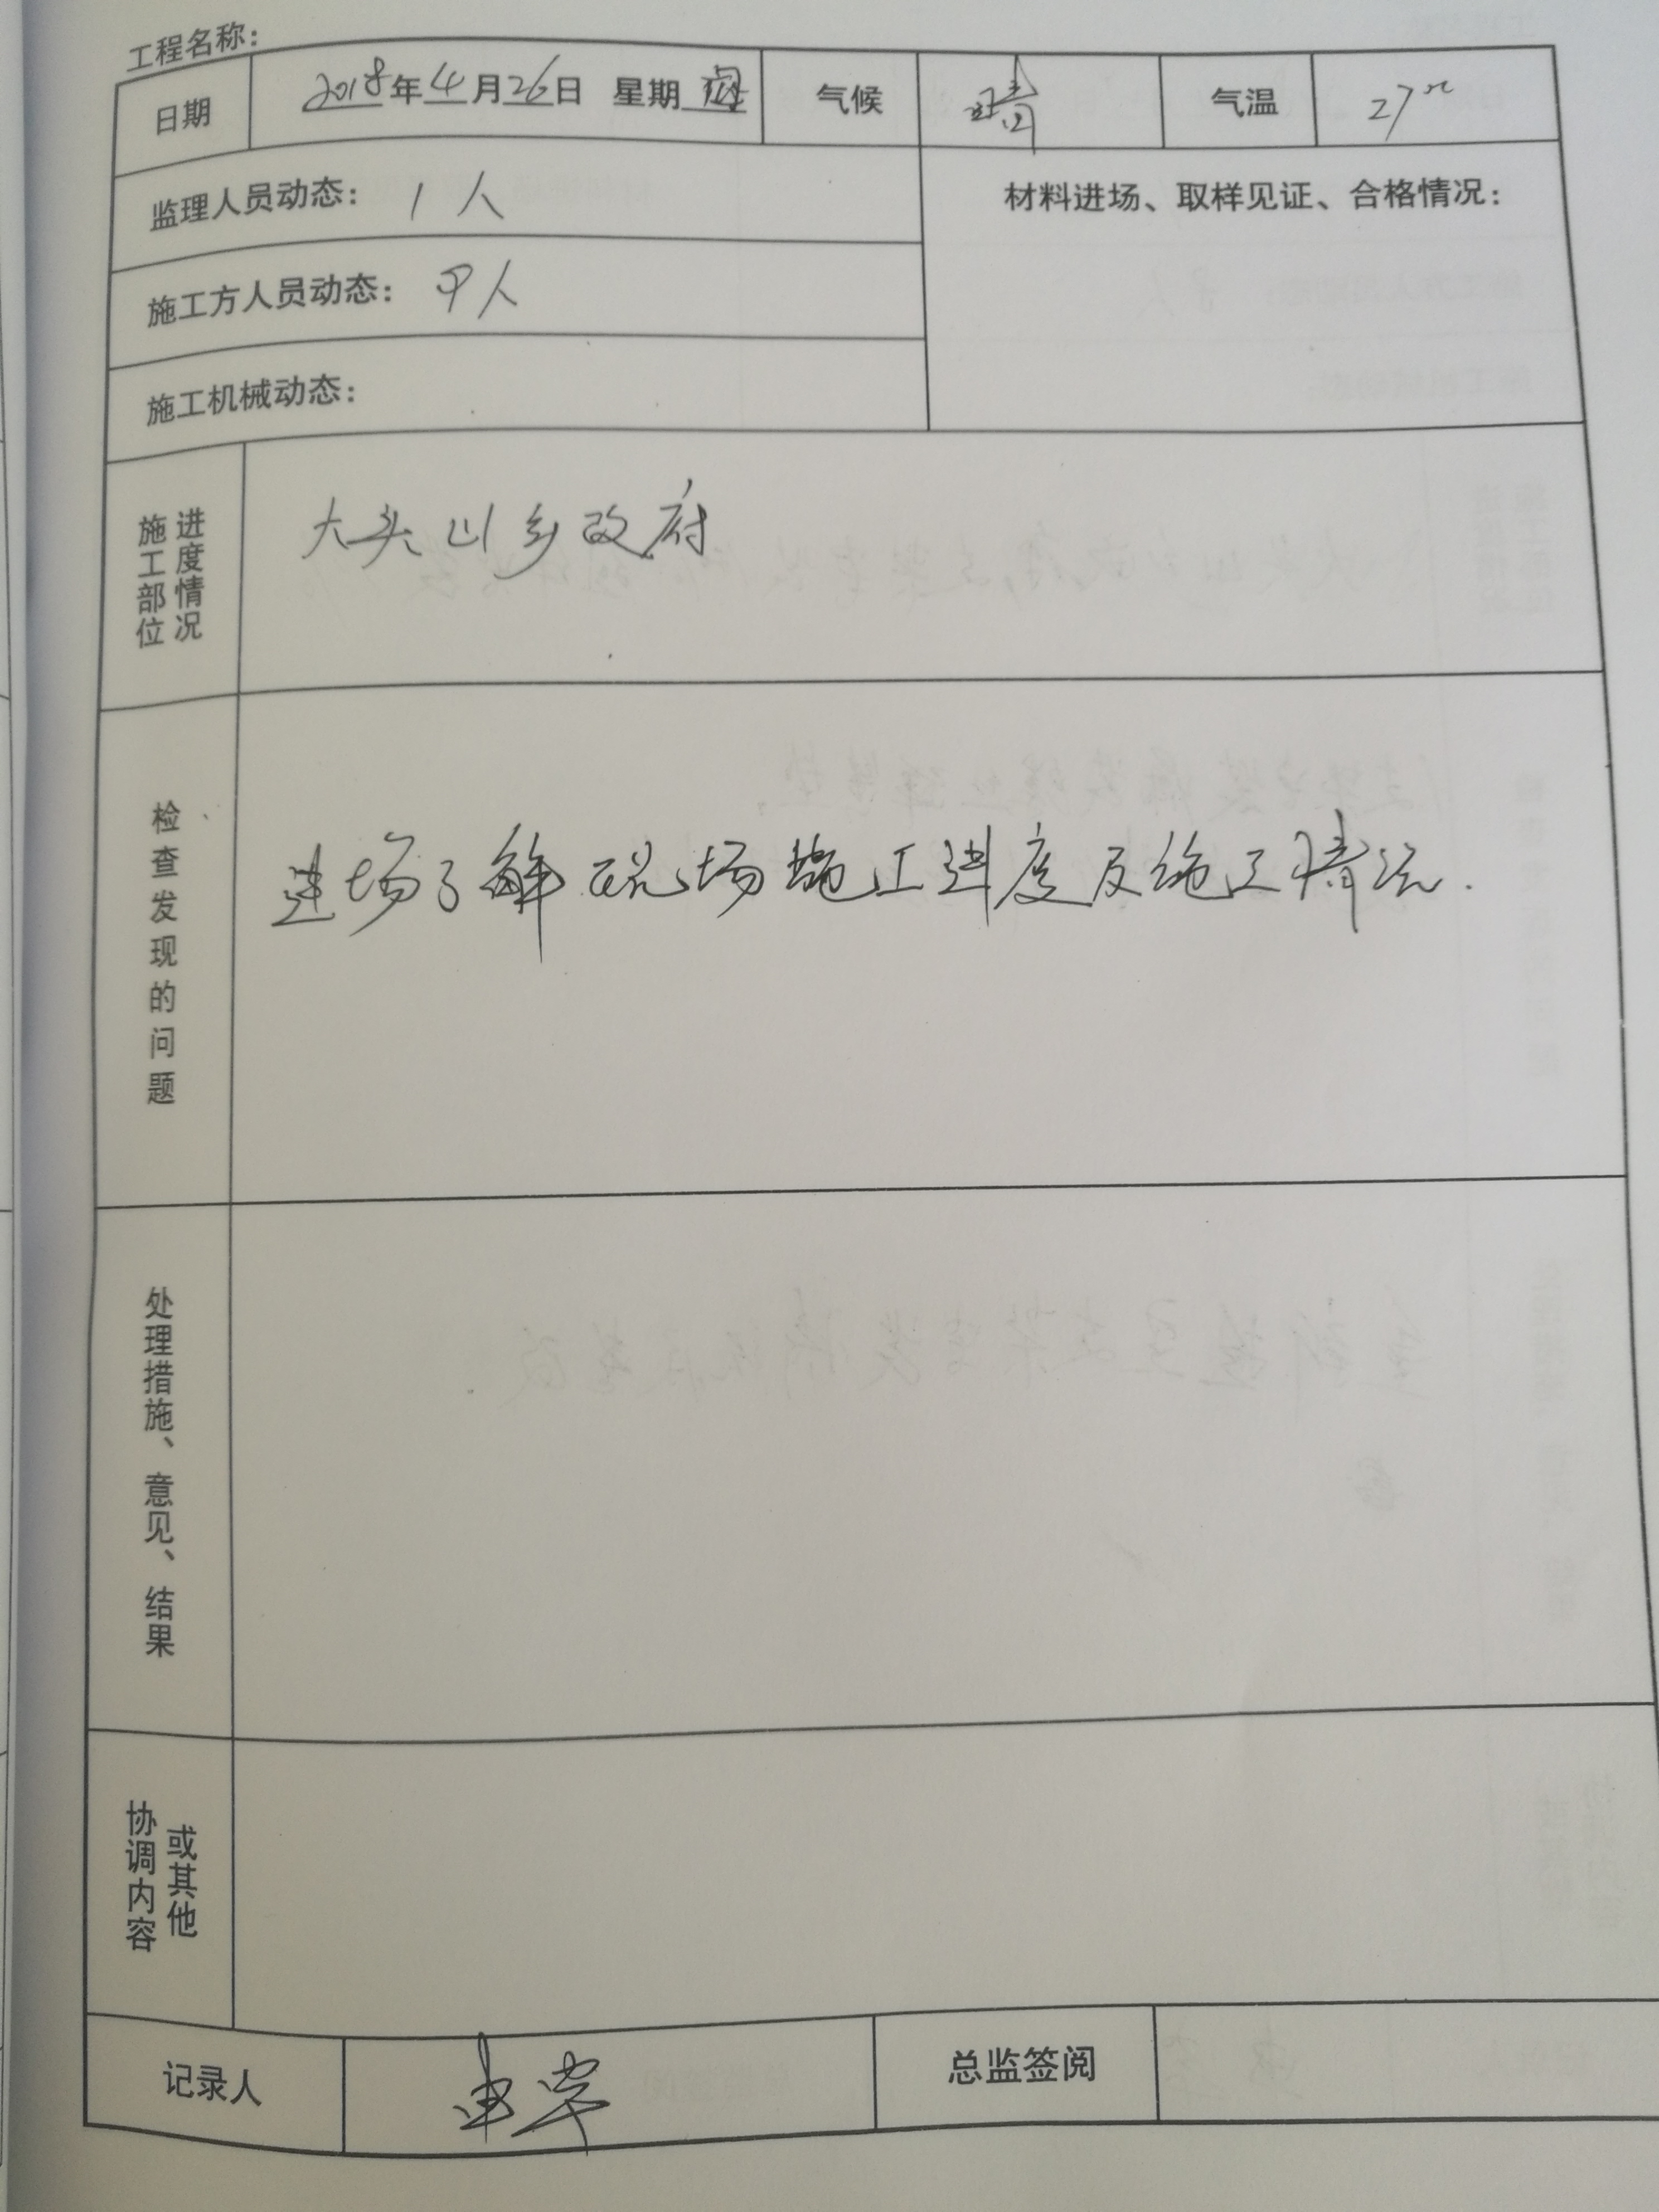 工程名称：
日期 2018年4月26日 星期 气候 晴 气温 27℃
监理人员动态：1人
材料进场、取样见证、合格情况：
施工方人员动态：甲人
施工机械动态：
施工部位
进度情况
大头山乡政府
检查发现的问题
进场了解现场施工进度及施工情况.
处理措施、意见、结果
协调内容
或其他
记录人 总监签阅